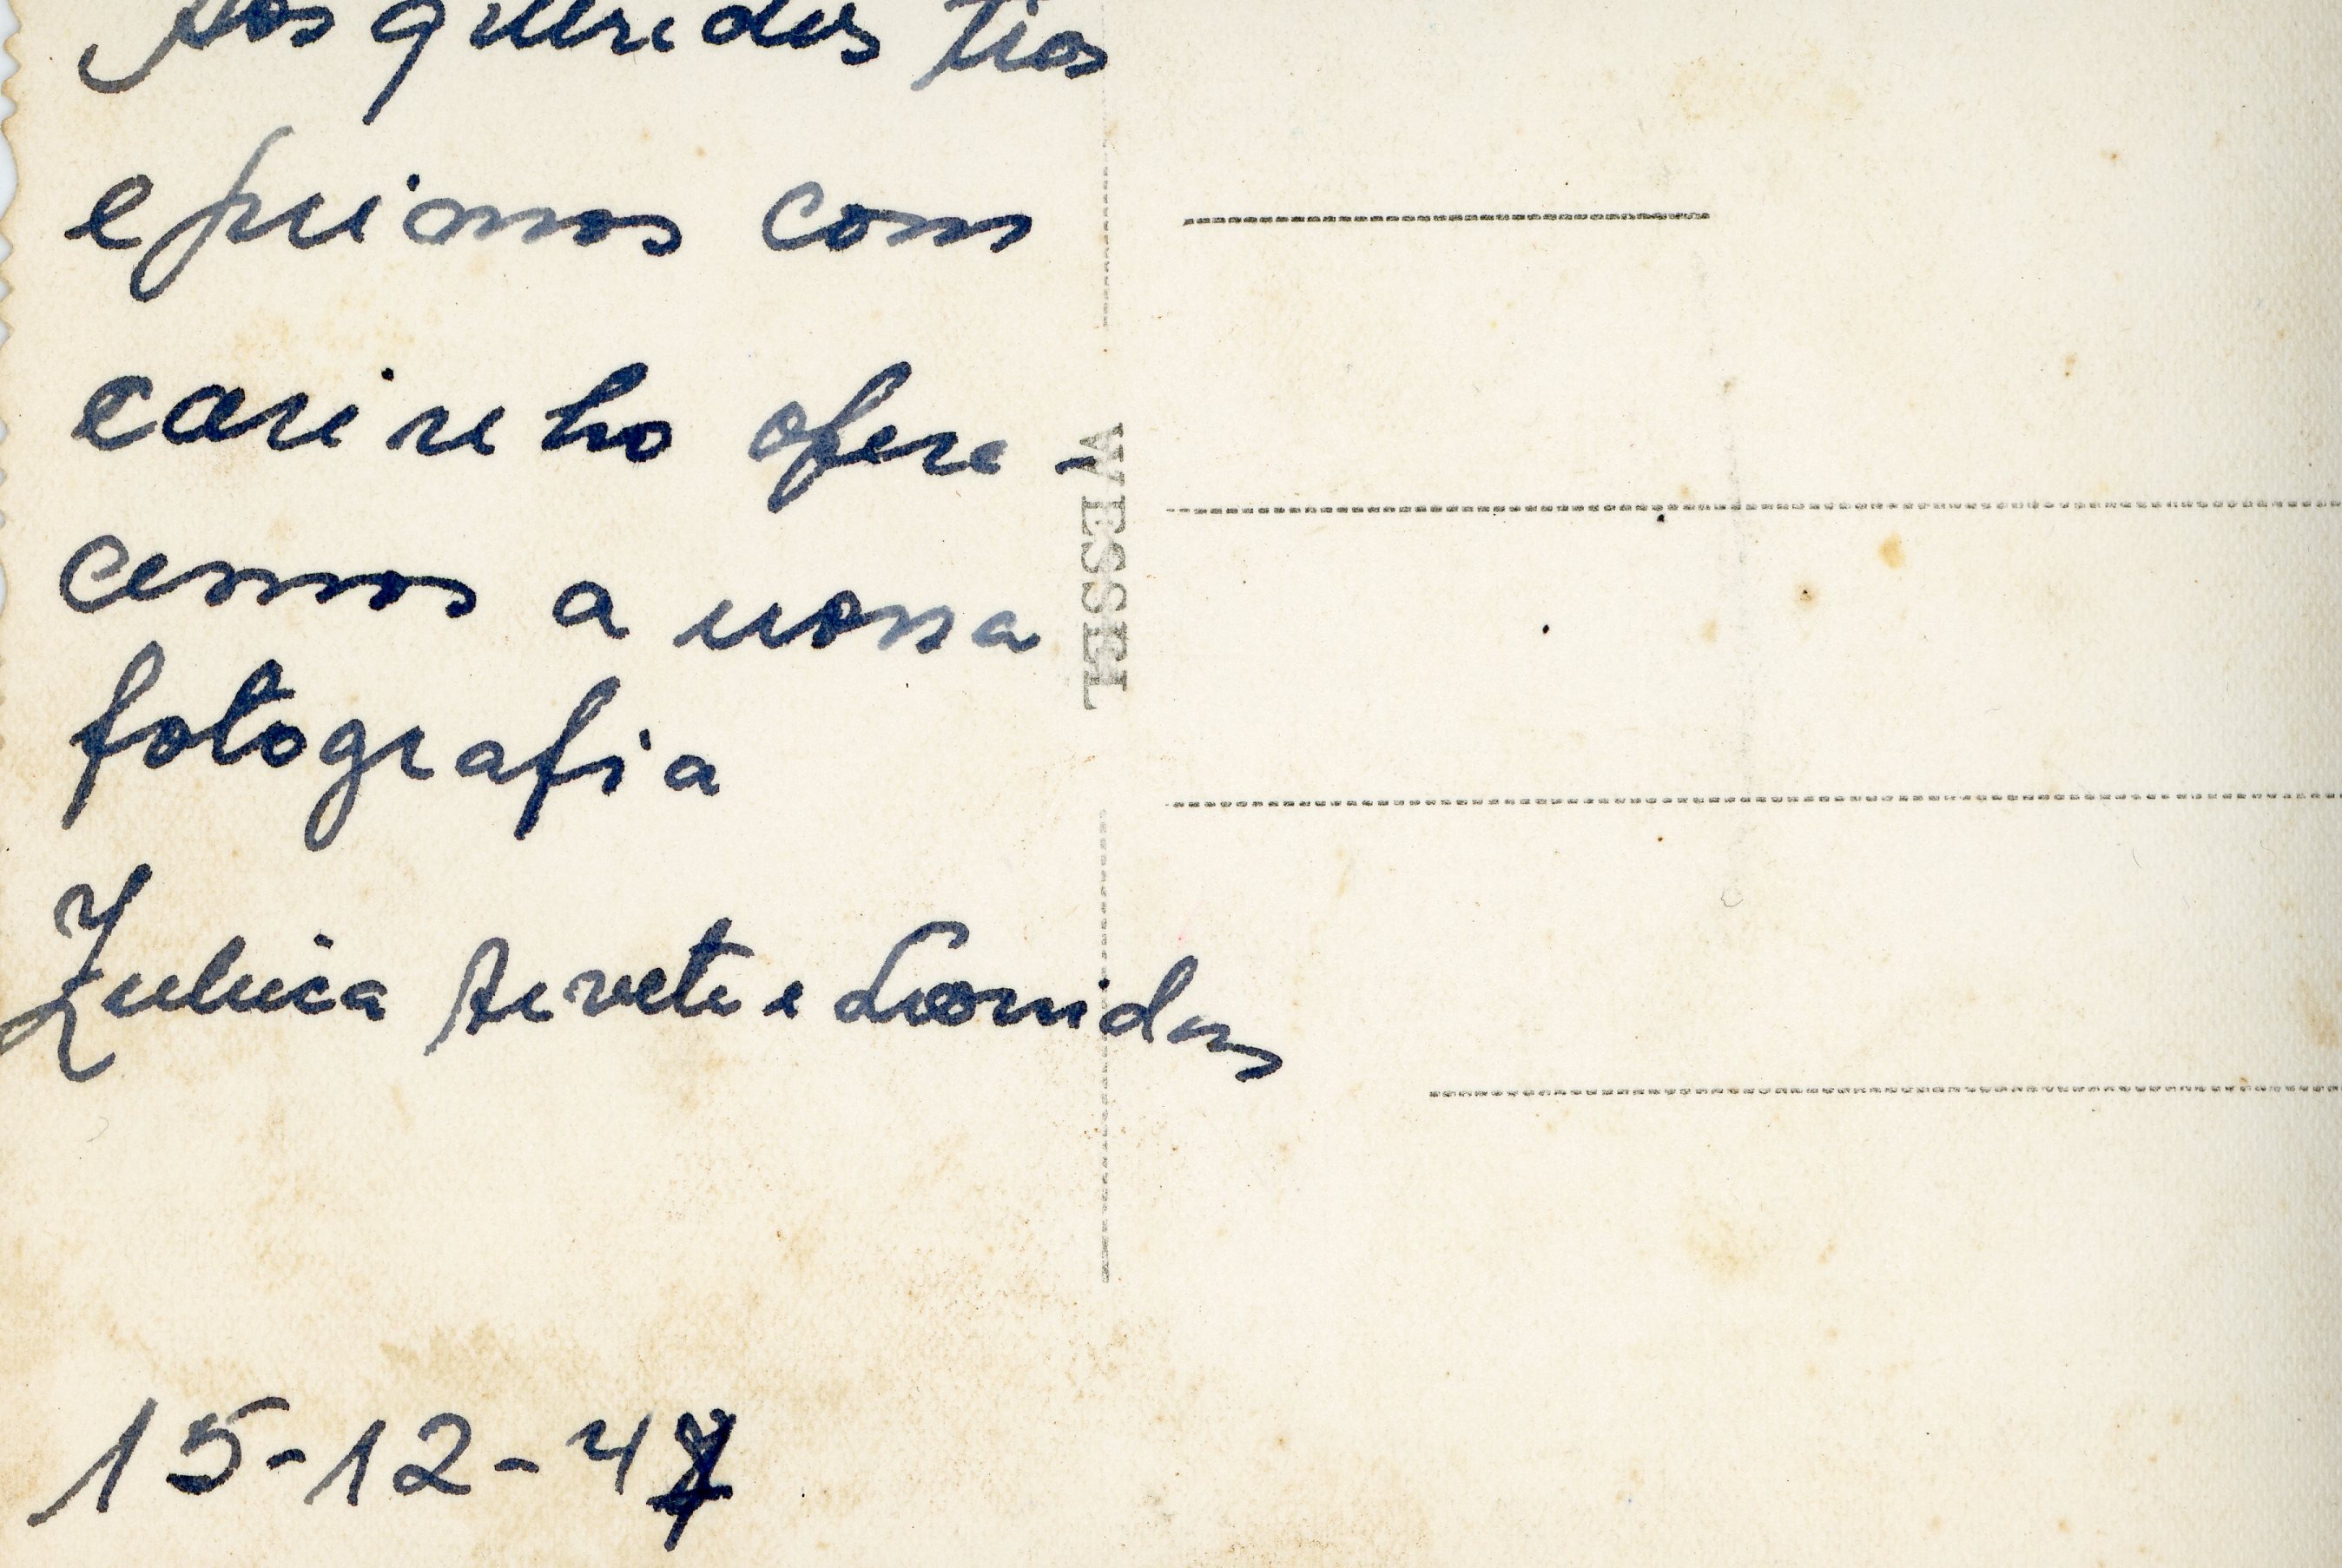 Aos queridos tios
e primos com
carinho ofere-
cemos a nossa
fotografia
Zuleica Arvete e Leonidas
15-12-47
WESSEL